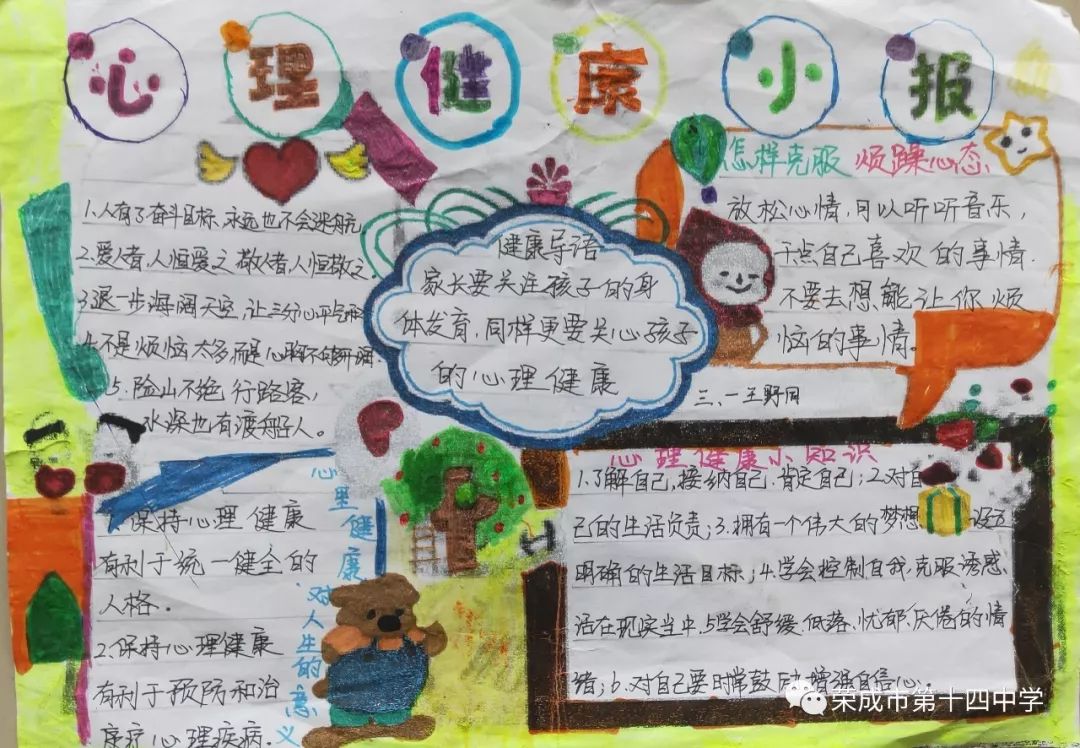 心理健康小报
1.人有了奋斗目标,永远也不会迷航
2.爱人者,人恒爱之 敬人者,人恒敬之.
3.退一步海阔天空,让三分心平气和
4.不是烦恼太多,而是心胸不够开阔
5.险山不绝 行路客,
水深也有渡船人。
健康导语
家长要关注孩子的身
体发育,同样更要关心孩子
的心理健康
怎样克服 烦躁心态
放松心情,可以听听音乐,
干点自己喜欢的事情.
不要去想,能让你烦
恼的事情。
三、一 王野同
心里健康 对人生的意义
1.保持心理健康
有利于统一健全的
人格.
2.保持心理健康
有利于预防和治
疗心理疾病.
心理健康小知识
1.了解自己,接纳自己.肯定自己;2.对自
己的生活负责;3.拥有一个伟大的梦想 设立
明确的生活目标;4.学会控制自我.克服诱惑.
活在现实当中.5学会舒缓.低落.忧郁.厌倦的情
绪;6.对自己要时常鼓励 增强自信心。
荣成市第十四中学